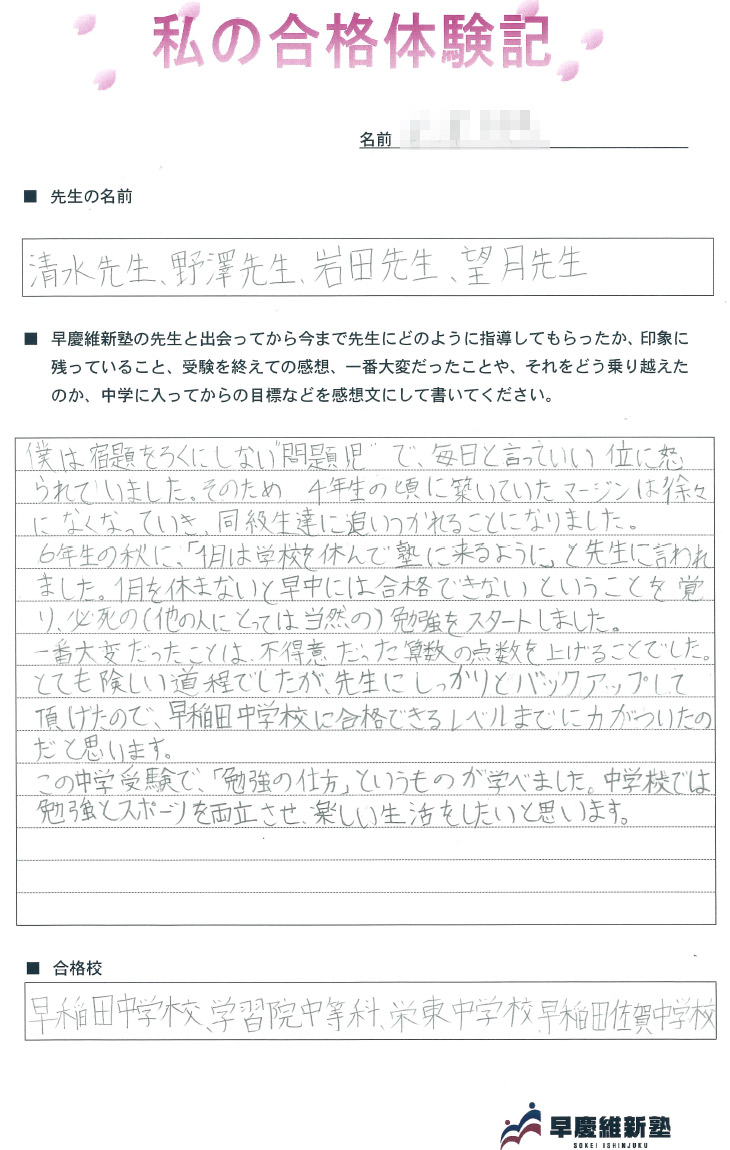 私の合格体験記
名前
■ 先生の名前
清水先生、野澤先生、岩田先生、望月先生
■ 早慶維新塾の先生と出会ってから今まで先生にどのように指導してもらったか、印象に
残っていること、受験を終えての感想、一番大変だったことや、それをどう乗り越えた
のか、中学に入ってからの目標などを感想文にして書いてください。
僕は宿題をろくにしない“問題児”で、毎日と言っていい位に怒
られていました。そのため 4年生の頃に築いていたマージンは徐々
になくなっていき、同級生達に追いつかれることになりました。
6年生の秋に、「1月は学校を休んで塾に来るように」と先生に言われ
ました。1月を休まないと早中には合格できないということを覚
り、必死の(他の人にとっては当然の)勉強をスタートしました。
一番大変だったことは、不得意だった算数の点数を上げることでした。
とても険しい道程でしたが、先生にしっかりとバックアップして
頂けたので、早稲田中学校に合格できるレベルまでに力がついたの
だと思います。
この中学受験で、「勉強の仕方」というものが学べました。中学校では
勉強とスポーツを両立させ、楽しい生活をしたいと思います。
■ 合格校
早稲田中学校、学習院中等科、栄東中学校、早稲田佐賀中学校
早慶維新塾
SOKEI ISHINJUKU